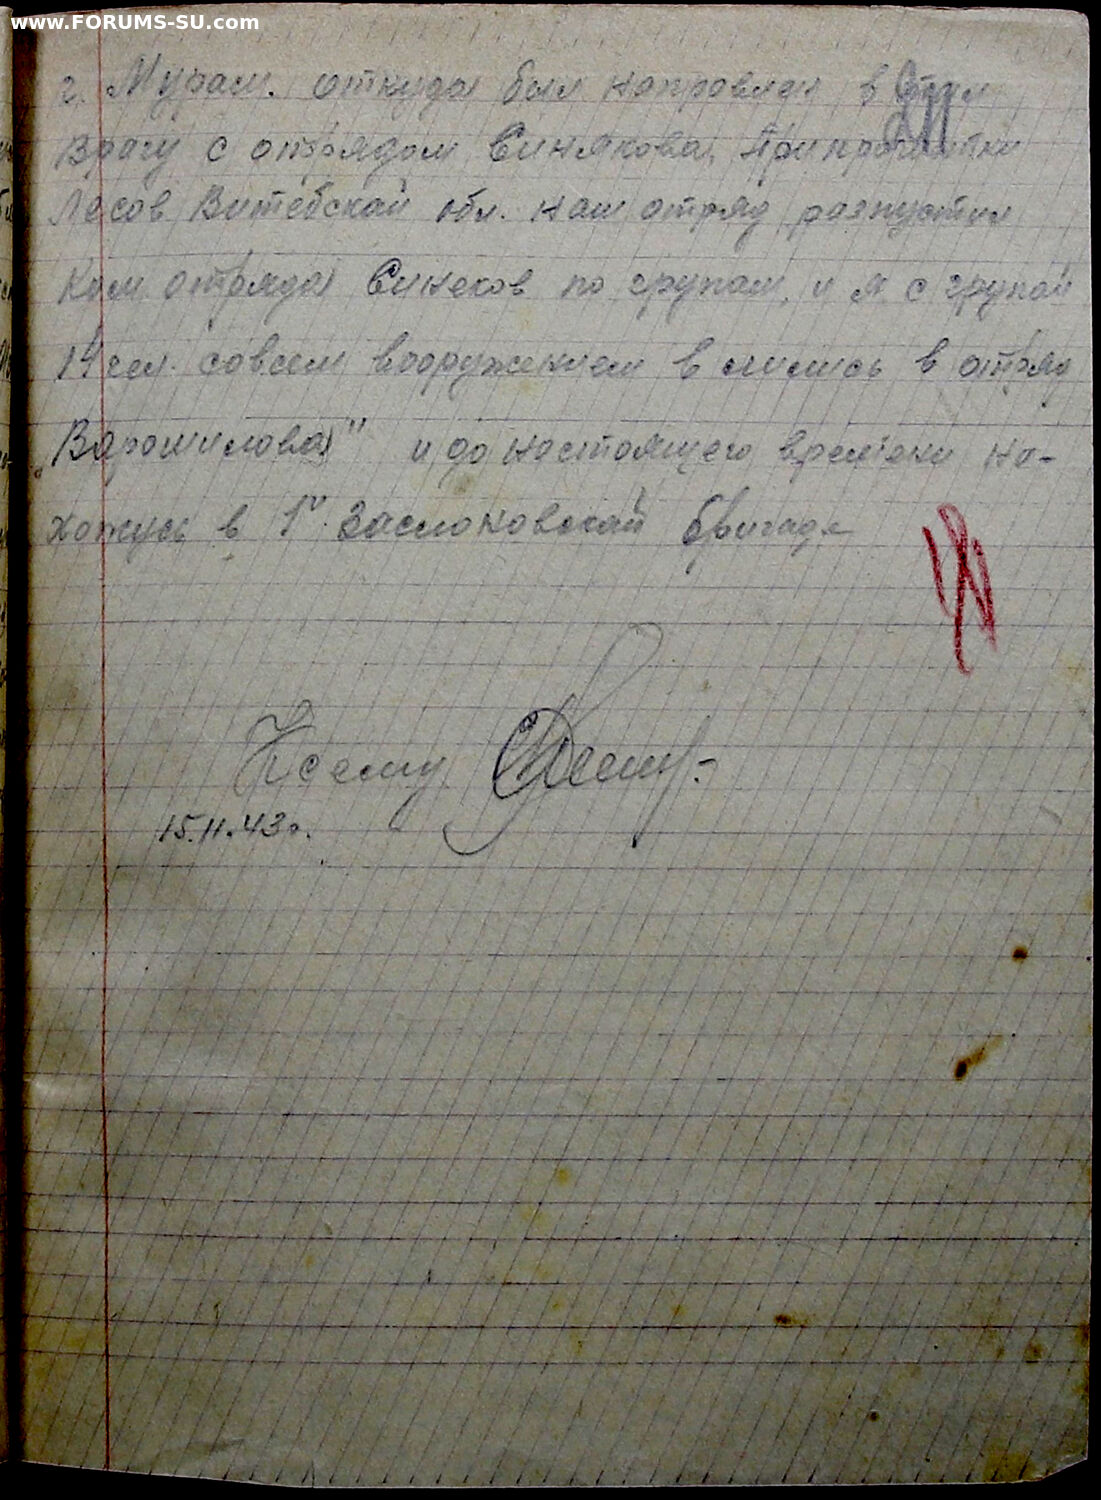 www.FORUMS-SU.com
г. Мурам. откуда был направлен в тыл
врагу с отрядом Синякова. При
Лесов Витебской обл. наш отряд распустил
Ком. отряда Синеков по групам, и я с групай
14 чел. совсем вооружением в лились в отряд
„Варошилова" и до настоящего времени на-
хожусь в 1й Заслоновской бригаде
К сему
15.11.43г.